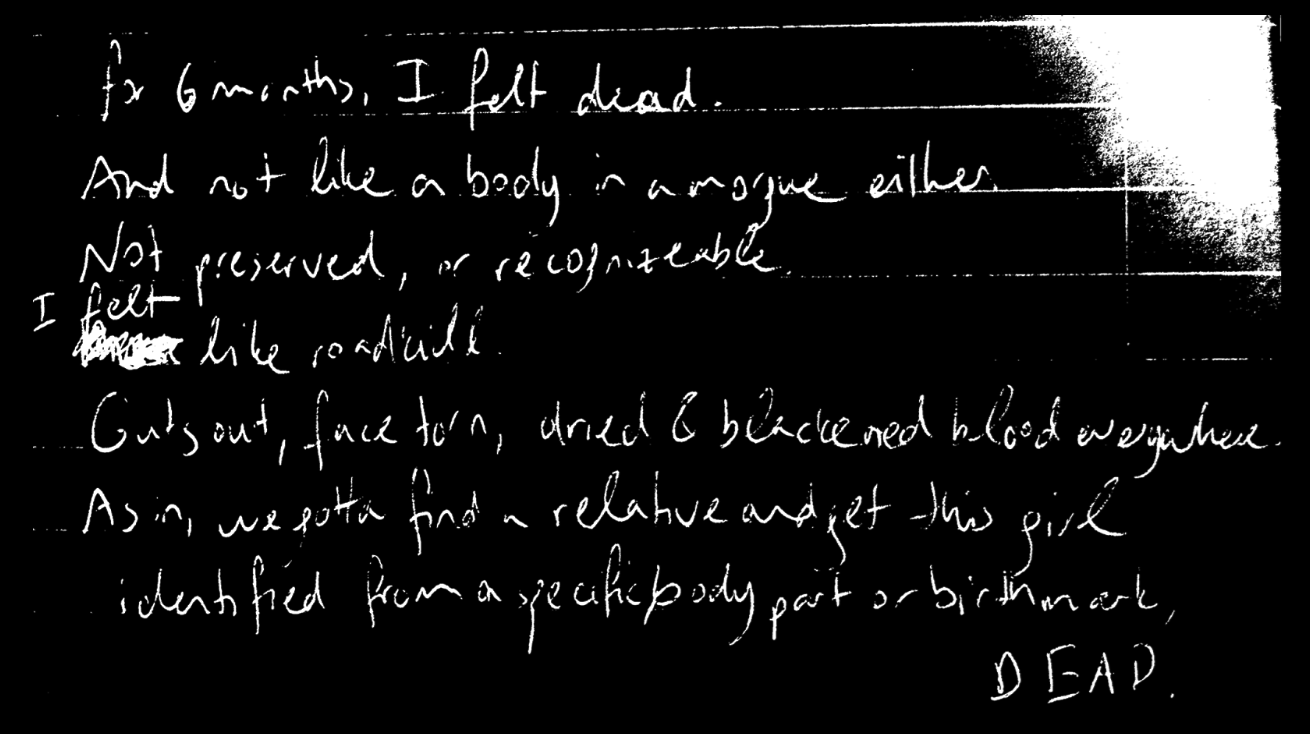 for 6 months, I felt dead.
And not like a body in a morgue either.
Not preserved, or recognizeable.
I felt
like roadkill.
Guts out, face torn, dried & blackened blood everywhere.
As in, we gotta find a relative and get this girl
identified from a specific body part or birthmark,
DEAD.